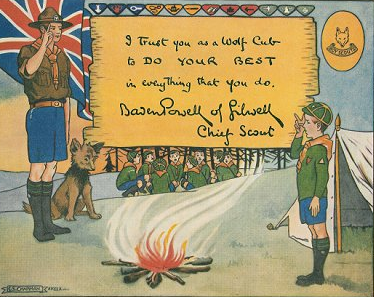 I trust you as a Wolf Cub
to DO YOUR BEST
in everything that you do.
Baden Powell of Gilwell
Chief Scout
BOY SCOUTS
CHAPMAN